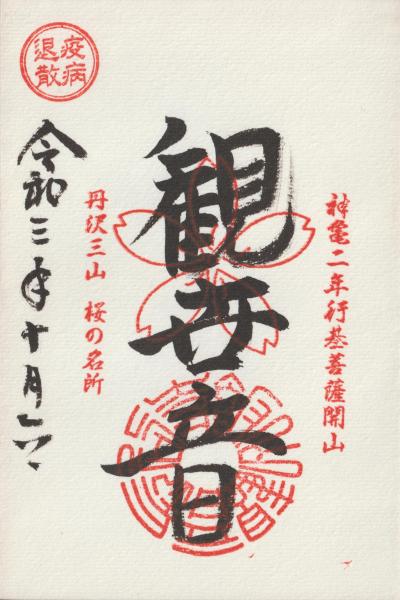 神亀二年行基菩薩開山
観世音
丹沢三山 桜の名所
疫病
退散
令和三年十月六日